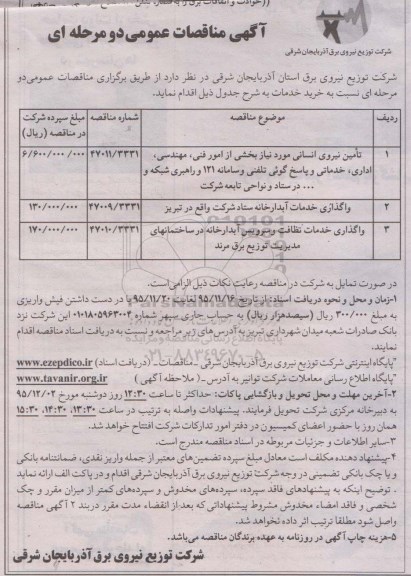 آگهی مناقصات عمومی دو مرحله ای
شرکت توزیع نیروی برق آذربایجان شرقی
شرکت توزیع نیروی برق استان آذربایجان شرقی در نظر دارد از طریق برگزاری مناقصات عمومی دو
مرحله ای نسبت به خرید خدمات به شرح جدول ذیل اقدام نماید.
ردیف موضوع مناقصه شماره مناقصه مبلغ سپرده شرکت در مناقصه (ریال)
۱ تأمین نیروی انسانی مورد نیاز بخشی از امور فنی، مهندسی، ۴۷۰۱۱/۳۳۳۱ ۶/۶۰۰/۰۰۰/۰۰۰
اداری، خدماتی و پاسخ گوئی تلفنی وسامانه ۱۲۱ و راهبری شبکه و
... در ستاد و نواحی تابعه شرکت
۲ واگذاری خدمات آبدارخانه ستاد شرکت واقع در تبریز ۴۷۰۰۹/۳۳۳۱ ۱۳۰/۰۰۰/۰۰۰
۳ واگذاری خدمات نظافت و سرویس آبدارخانه در ساختمانهای ۴۷۰۱۰/۳۳۳۱ ۱۷۰/۰۰۰/۰۰۰
مدیریت توزیع برق مرند
در صورت تمایل به شرکت در مناقصه رعایت نکات ذیل الزامی است.
۱-زمان و محل و نحوه دریافت اسناد: از تاریخ ۹۵/۱۱/۱۶ لغایت ۹۵/۱۱/۲۰ با در دست داشتن فیش واریزی
به مبلغ ۳۰۰/۰۰۰ ریال (سیصدهزار ریال) به حساب جاری سپهر شماره ۰۱۰۱۸۰۵۹۶۳۰۰۴ این شرکت نزد
بانک صادرات شعبه میدان شهرداری تبریز به آدرس های زیر مراجعه و نسبت به دریافت اسناد مناقصه اقدام
نمایند.
*پایگاه اینترنتی شرکت توزیع نیروی برق آذربایجان شرقی -مناقصات- (دریافت اسناد) www.ezepdico.ir
*پایگاه اطلاع رسانی معاملات شرکت توانیر به آدرس - (ملاحظه آگهی) www.tavanir.org.ir
۲-آخرین مهلت و محل تحویل و بازگشایی پاکات: حداکثر تا ساعت ۱۲:۳۰ روز دوشنبه مورخ ۹۵/۱۲/۰۲
به دبیرخانه مرکزی شرکت تحویل فرمایند. پیشنهادات واصله به ترتیب در ساعت ۱۳:۳۰، ۱۴:۳۰، ۱۵:۳۰
همان روز با حضور اعضای کمیسیون در دفتر امور تدارکات شرکت افتتاح خواهد شد.
۳-سایر اطلاعات و جزئیات مربوطه در اسناد مناقصه مندرج است.
۴-پیشنهاد دهنده مکلف است معادل مبلغ سپرده تضمین های معتبر از جمله واریز نقدی، ضمانتنامه بانکی
و یا چک بانکی تضمینی در وجه شرکت توزیع نیروی برق آذربایجان شرقی اقدام و در پاکت الف ارائه نماید
. توضیح اینکه به پیشنهادهای فاقد سپرده، سپرده های مخدوش و سپرده های کمتر از میزان مقرر و چک
شخصی و فاقد امضاء مخدوش مشروط پیشنهاداتی که بعد از انقضاء مدت مقرر در بند ۲ آگهی مناقصه
واصل شود مطلقا ترتیب اثر داده نخواهد شد.
۵-هزینه چاپ آگهی در روزنامه به عهده برندگان مناقصه می باشد.
شرکت توزیع نیروی برق آذربایجان شرقی